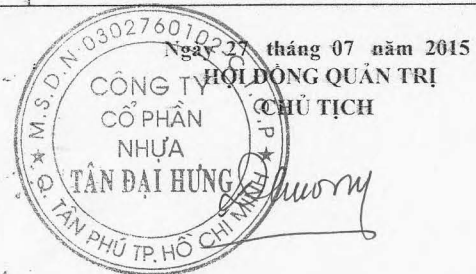 Ngày 27 tháng 07 năm 2015
HỘI ĐỒNG QUẢN TRỊ
CHỦ TỊCH
M.S.D.N: 0302760102 - C.T.C.P
CÔNG TY
CỔ PHẦN
NHỰA
TÂN ĐẠI HƯNG
Q. TÂN PHÚ TP. HỒ CHÍ MINH